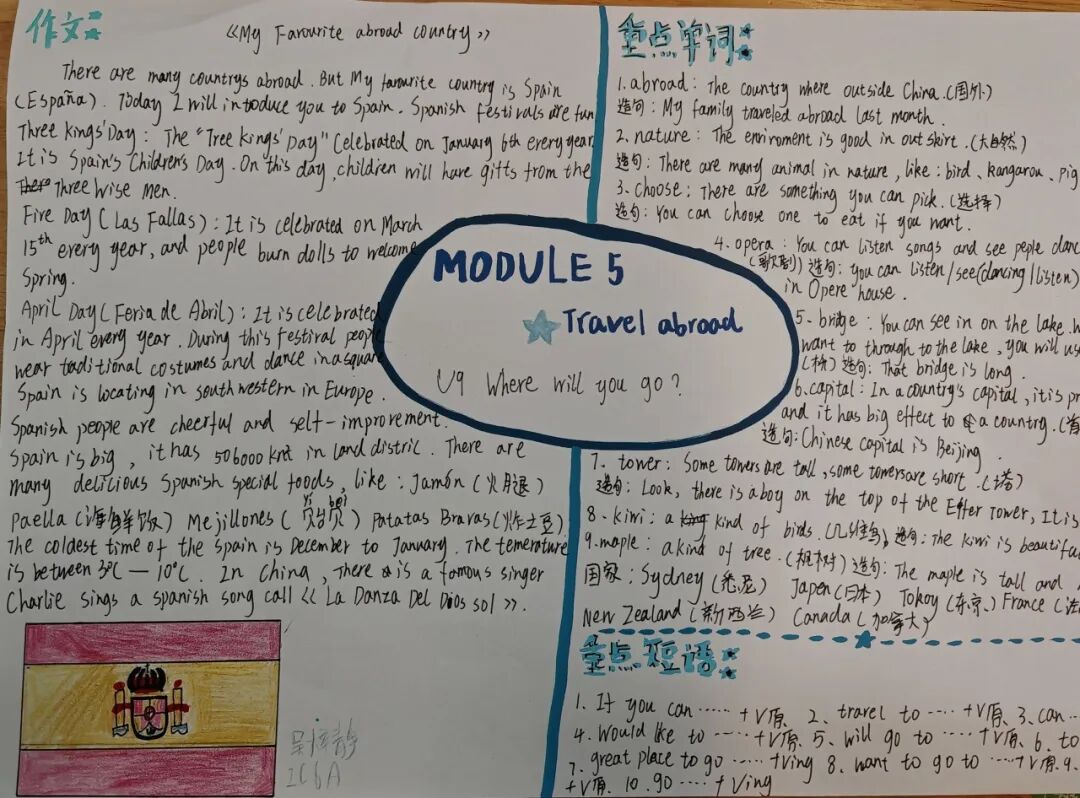 作文:
《My Favourite abroad country》
There are many countrys abroad. But My favourite country is Spain
(España). Today I will introduce you to Spain. Spanish Festivals are fun
Three Kings' Day: The "Tree Kings' Day" Celebrated on January 6th every year.
It is Spain's Children's Day. On this day, children will have gifts from the
Three Wise Men.
Fire Day (Las Fallas): It is celebrated on March
15th every year, and people burn dolls to welcome
Spring.
April Day (Feria de Abril): It is celebrated
in April every year. During this festival people
wear traditional costumes and dance in a square
Spain is locating in southwestern in Europe.
Spanish people are cheerful and self-improvement.
Spain is big, it has 506000 km² in land distric. There are
many delicious Spanish special foods, like: Jamón (火腿)
Paella (海鲜饭) Mejillones (贻贝) Patatas Bravas (炸土豆)
yí bèi
The coldest time of the Spain is December to January. The temerature
is between 3℃ — 10℃. In China, There is a famous singer
Charlie sings a spanish song call 《La Danza Del Dios sol》.
MODULE 5
Travel abroad
U9 Where will you go?
重点单词:
1. abroad: The country where outside China. (国外)
造句: My family traveled abroad last month.
2. nature: The enviroment is good in outskirt. (大自然)
造句: There are many animal in nature, like: bird, kangarou, pig
3. choose: There are something you can pick. (选择)
造句: You can choose one to eat if you want.
4. opera: You can listen songs and see peple danc
(歌剧) 造句: you can listen/see(dancing/listen)
in Opere house.
5. bridge: You can see in on the lake.
want to through to the lake, you will us
(桥) 造句: That bridge is long.
6. capital: In a country's capital, it is pr
and it has big effect to a country.
造句: Chinese capital is Beijing.
7. tower: Some towers are tall, some towers are short. (塔)
造句: Look, there is a boy on the top of the Effer Tower, It is
8. kiwi: a kind of birds. (几维鸟) 造句: The kiwi is beautifu
9. maple: a kind of tree. (枫树) 造句: The maple is tall and
国家: Sydney (悉尼) Japen (日本) Tokoy (东京) France
New Zealand (新西兰) Canada (加拿大)
重点短语:
1. If you can ...... +V原. 2. travel to ...... +V原. 3. can
4. Would like to ...... +V原. 5. will go to ...... +V原. 6. to
7. great place to go ...... +Ving 8. want to go to ...... +V原. 9.
+V原. 10. go ...... + Ving